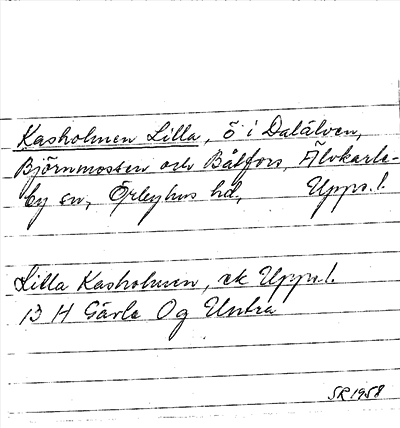 Kasholmen Lilla, ö i Dalälven,
Björnmossen och Båtfors, Älvkarle-
by sn, Örbyhus hd, Upps. l.
Lilla Kasholmen, ek Upps. l.
13 H Gävle Og Untra
SR 1958